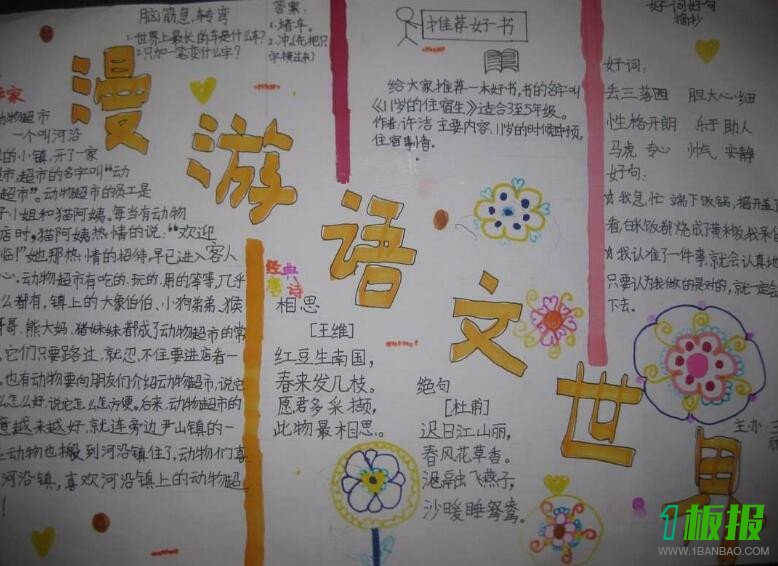 脑筋急转弯
1.世界上最长的车是什么车?
2.只加一笔变什么字?
答案:
1.堵车。
2.冲(先把只
字横过来)
推荐好书
给大家推荐一本好书,书的名字叫
《11岁的住宿生》适合3至5年级。
作者:许洁 主要内容、11岁的时候
住宿
好词好句
摘抄
好词:
丢三落四 胆大心细
性格开朗 乐于助人
马虎 专心 帅气 安静
好句:
我急忙端下饭锅,揭开盖子
看,白米饭都烧成了黄米饭
我认准了一件事,就会认真地
只要认为我做的是对的,就一定会
下去。
漫游语文世界
动物超市
一个叫河沿
的小镇,开了一家
超市的名字叫“动
超市”。动物超市的员工是
小姐和猫阿姨。每当有动物
店时,猫阿姨热情的说:“欢迎
临!”她那热情的招待,早已进入客人
心。动物超市有吃的、玩的、用的等等,几乎
么都有,镇上的大象伯伯、小狗弟弟、猴
哥哥、熊大妈、猪妹妹都成了动物超市的常
,它们只要路过,就忍不住要进店看一
。也有动物要向朋友们介绍动物超市,说它
么怎么好,说它怎么怎么方便。后来,动物超市的
越来越好,就连旁边尹山镇的一
些动物也搬到河沿镇住了,动物们喜
河沿镇,喜欢河沿镇上的动物超
!
经典
唐诗
相思
[王维]
红豆生南国,
春来发几枝。
愿君多采撷,
此物最相思。
绝句
[杜甫]
迟日江山丽,
春风花草香。
泥融飞燕子,
沙暖睡鸳鸯。
主办:三
1板报
WWW.1BANBAO.COM